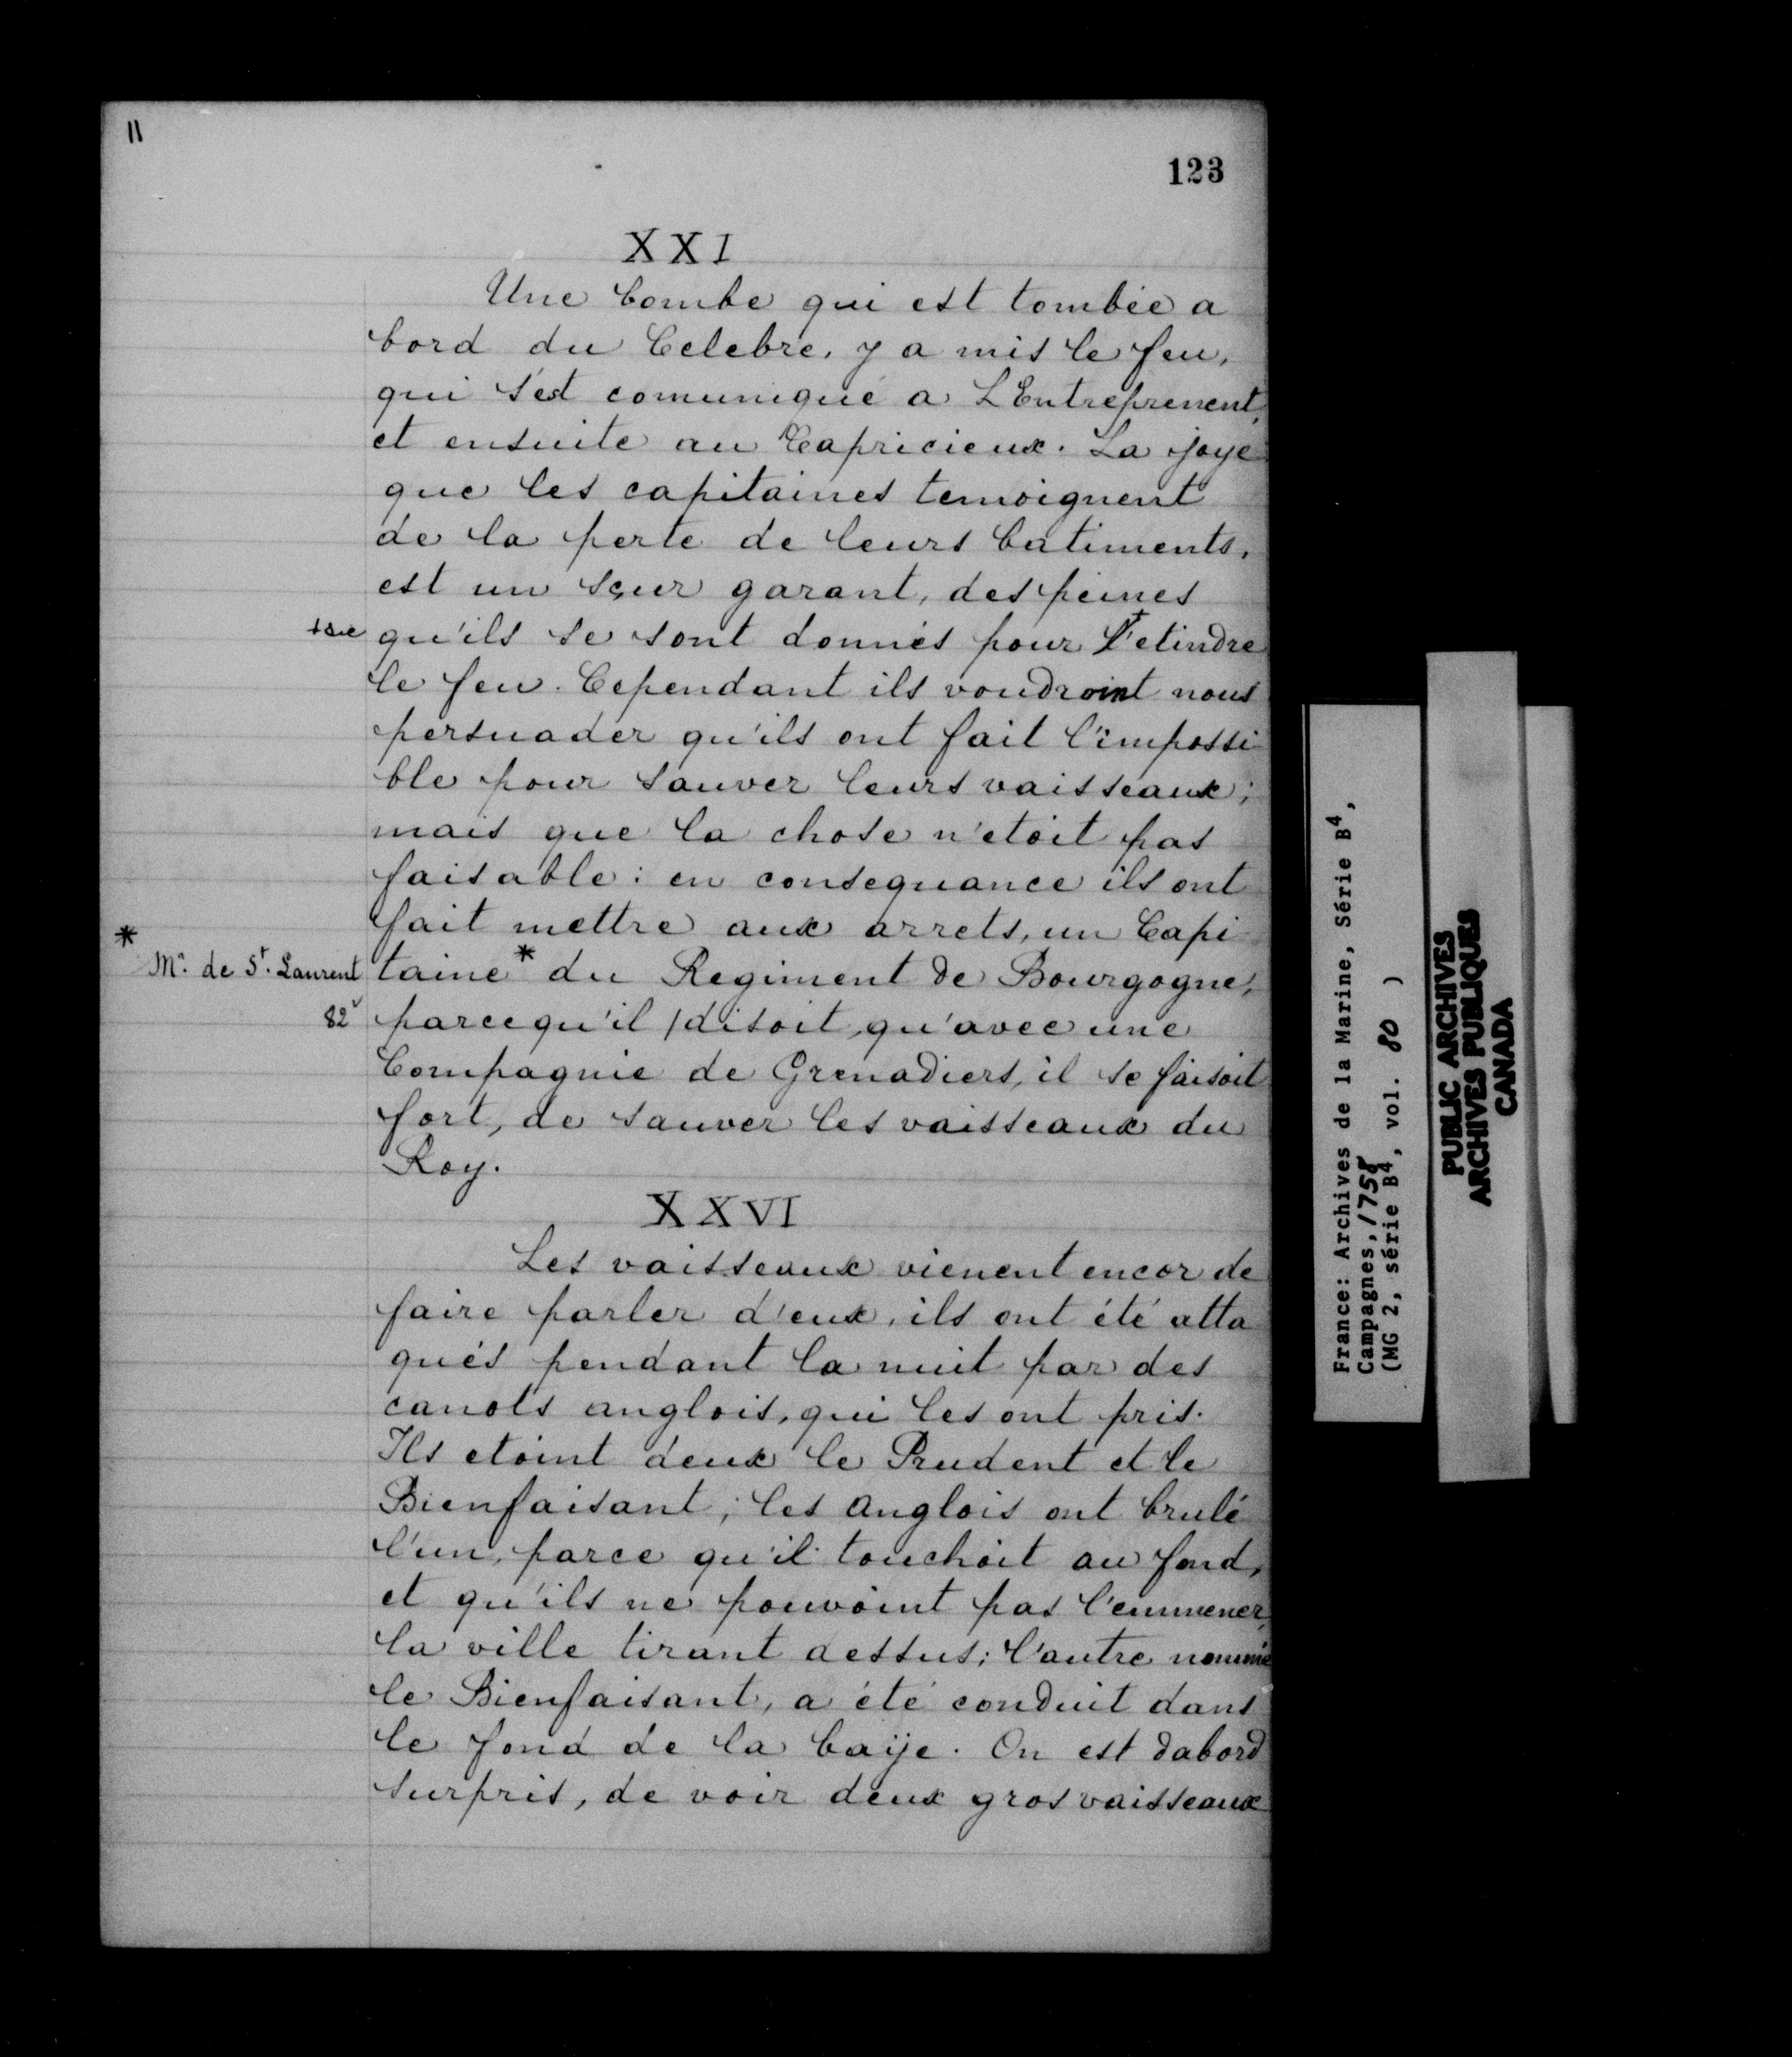 11
123
XXI
Une bombe qui est tombée a
bord du Celebre, y a mis le feu,
qui s'est comuniqué a L'Entreprenent,
et ensuite au Capricieux. La joye
que les capitaines temoignent
de la perte de leurs batiments,
est un sçur garant, des peines
+sic qu'ils se sont donnés pour l'+etindre
le feu. Cependant ils voudroint nous
persuader qu'ils ont fait l'impossi
ble pour sauver leurs vaisseaux;
mais que la chose n'etoit pas
faisable: en consequance ils ont
fait mettre aux arrets, un Capi
*
Mr. de St. Laurent taine * du Regiment de Bourgogne,
82v parcequ'il / disoit, qu'avec une
Compagnie de Grenadiers, il se faisoit
fort, de sauver les vaisseaux du
Roy.
XXVI
Les vaisseaux vienent encor de
faire parler d'eux, ils ont été atta
qués pendant la nuit par des
canots anglois, qui les ont pris.
Ils etoint deux le Prudent et le
Bienfaisant; les anglois ont brulé
l'un, parce qu'il touchoit au fond,
et qu'ils ne pouvoint pas l'emmener,
la ville tirant dessus; l'autre nommé
le Bienfaisant, a été conduit dans
le fond de la baÿe. On est dabord
surpris, de voir deux gros vaisseaux
France: Archives de la Marine, Série B4,
Campagnes, 1758
(MG 2, série B4, vol. 80 )
PUBLIC ARCHIVES
ARCHIVES PUBLIQUES
CANADA